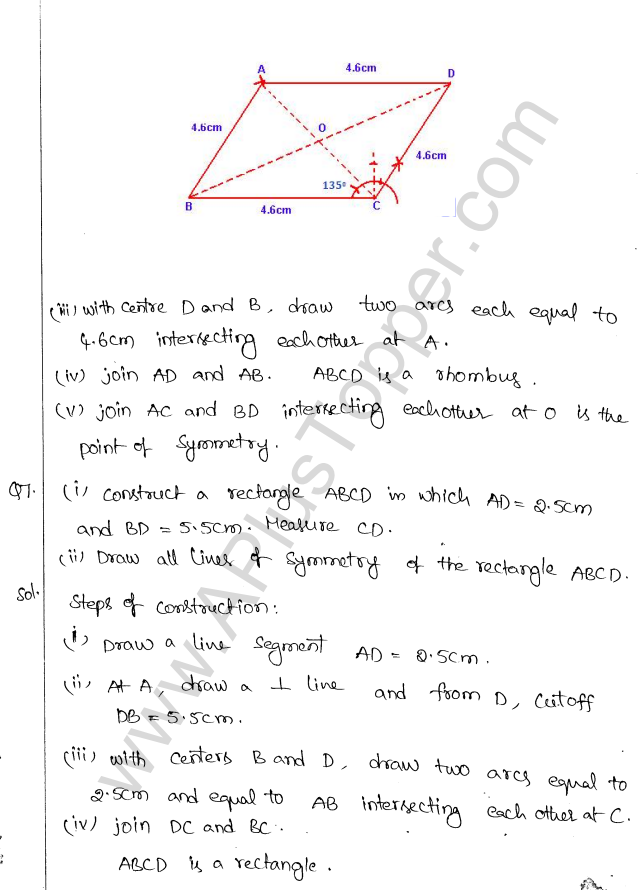 A
4.6cm
D
4.6cm
O
4.6cm
135°
B
4.6cm
C
(iii) with centre D and B, draw two arcs each equal to
4.6cm intersecting eachother at A.
(iv) join AD and AB. ABCD is a rhombus.
(v) join AC and BD intersecting eachother at O is the
point of symmetry.
Q7. (i) construct a rectangle ABCD in which AD = 2.5cm
and BD = 5.5cm. Measure CD.
(ii) Draw all lines of symmetry of the rectangle ABCD.
Sol. Steps of construction:
(i) Draw a line segment AD = 2.5cm.
(ii) At A, draw a ⊥ line and from D, cutoff
DB = 5.5cm.
(iii) with centers B and D, draw two arcs equal to
2.5cm and equal to AB intersecting each other at C.
(iv) join DC and BC.
ABCD is a rectangle.
www.APlusTopper.com